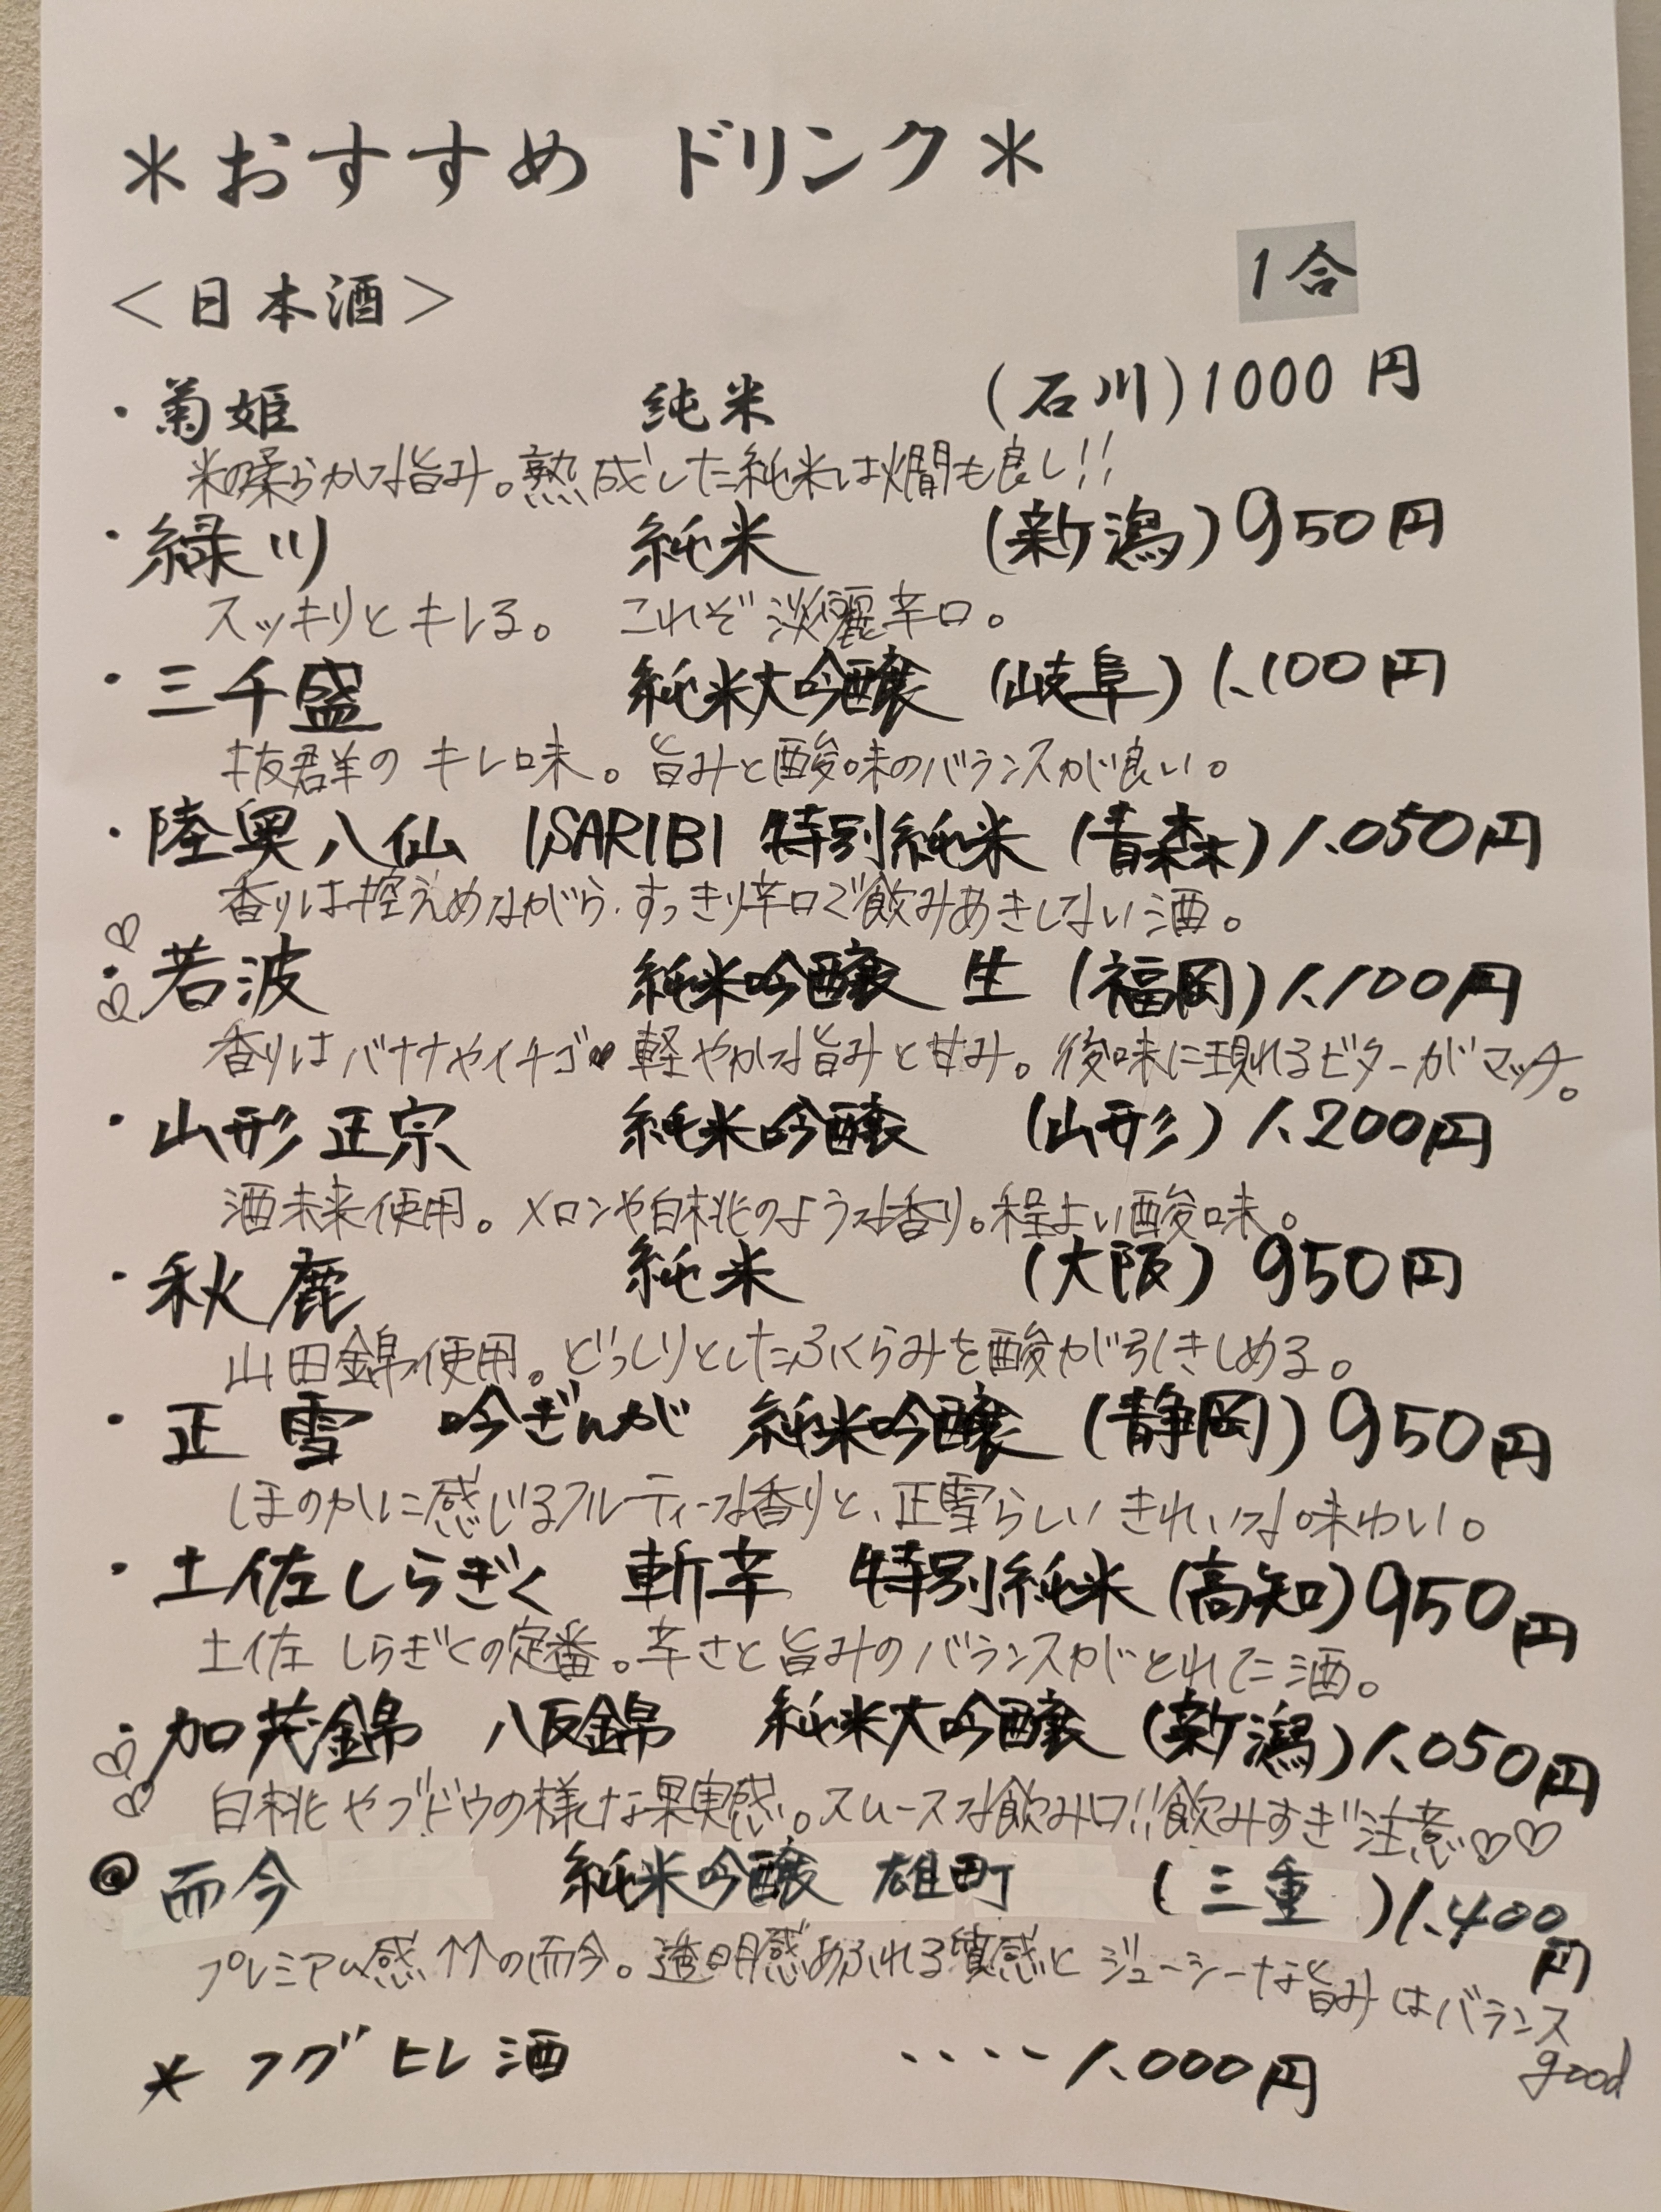 ＊おすすめ ドリンク＊
＜日本酒＞ 1合
・菊姫 純米 (石川) 1000円
米の柔らかな旨み。熟成した純米は燗も良し!!
・緑川 純米 (新潟) 950円
スッキリとキレる。 これぞ淡麗辛口。
・三千盛 純米大吟醸 (岐阜) 1.100円
抜群のキレ味。旨みと酸味のバランスが良い。
・陸奥八仙 ISARIBI 特別純米 (青森) 1.050円
香りは控えめながら、すっきり辛口で飲みあきしない酒。
♡・♡若波 純米吟醸 生 (福岡) 1.100円
香りはバナナやイチゴ♥軽やかな旨みと甘み。後味に現れるビターがマッチ。
・山形正宗 純米吟醸 (山形) 1.200円
酒未来使用。メロンや白桃のような香り。程よい酸味。
・秋鹿 純米 (大阪) 950円
山田錦使用。どっしりとしたふくらみを酸が引きしめる。
・正雪 吟ぎんが 純米吟醸 (静岡) 950円
ほのかに感じるフルーティーな香りと、正雪らしいきれいな味わい。
・土佐しらぎく 斬辛 特別純米 (高知) 950円
土佐しらぎくの定番。辛さと旨みのバランスがとれた酒。
・♡♡加茂錦 八反錦 純米大吟醸 (新潟) 1.050円
白桃やブドウの様な果実感。スムースな飲み口!!飲みすぎ注意♡♡
◎而今 純米吟醸 雄町 (三重) 1.400円
プレミアム感↑↑の而今。透明感あふれる質感とジューシーな旨みはバランスgood
＊フグヒレ酒 ････1.000円